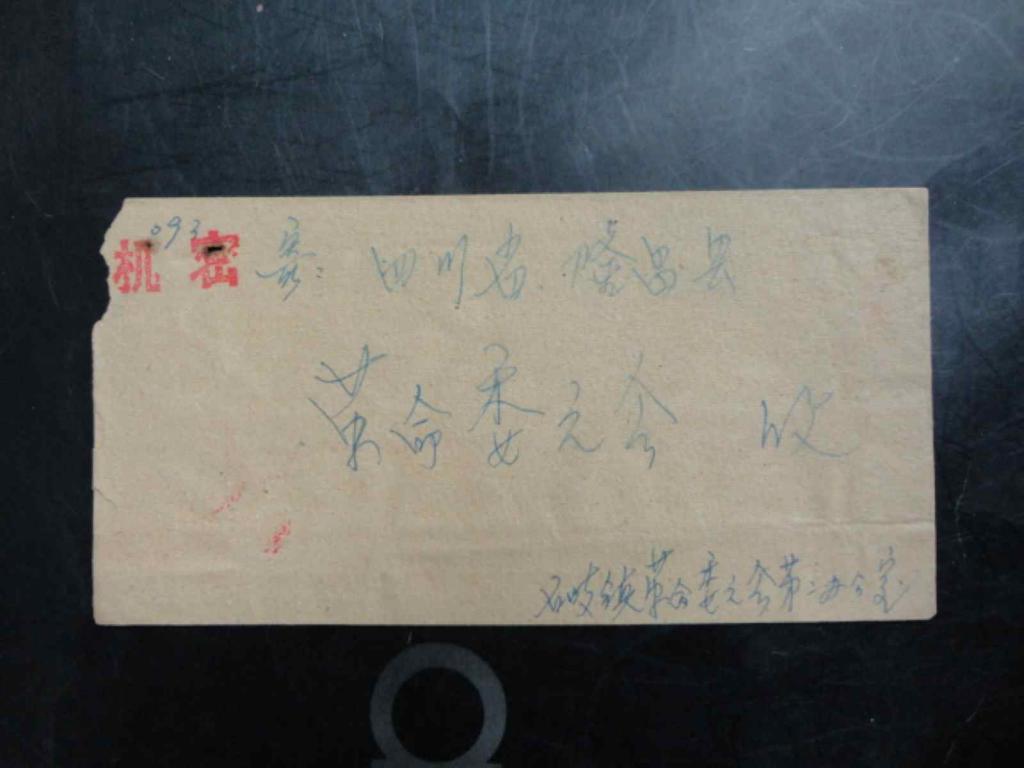 093
机密 寄: 四川省 隆昌县
革命委元会 收
石岐镇革命委元会第三办公室